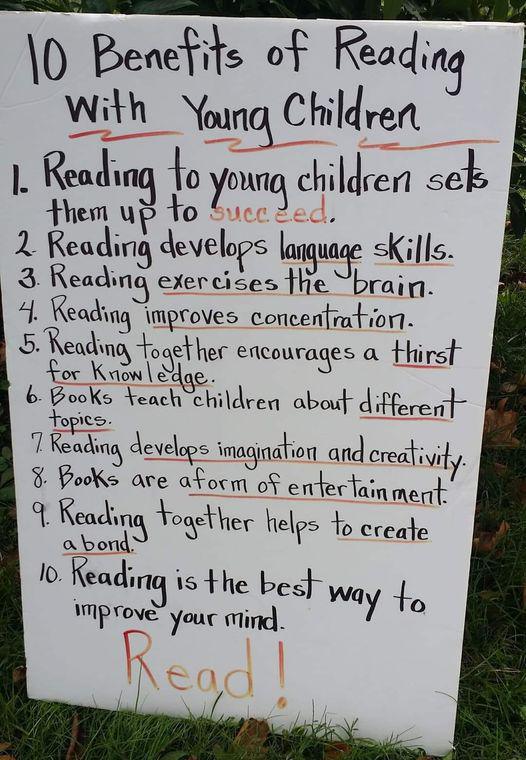 10 Benefits of Reading
With Young Children
1. Reading to young children sets
them up to succeed.
2. Reading develops language skills.
3. Reading exercises the brain.
4. Reading improves concentration.
5. Reading together encourages a thirst
for Knowledge.
6. Books teach children about different
topics.
7. Reading develops imagination and creativity.
8. Books are a form of entertainment.
9. Reading together helps to create
a bond.
10. Reading is the best way to
improve your mind.
Read!